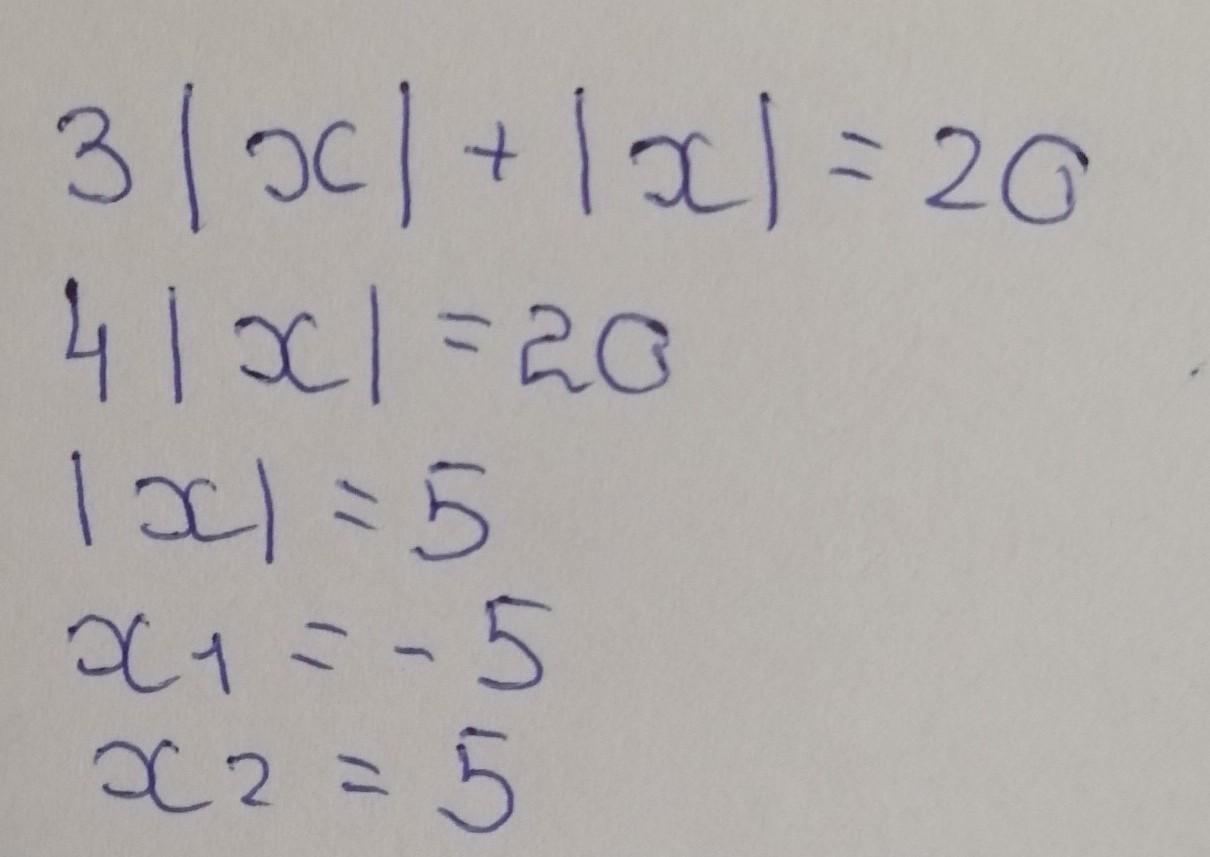 3|x|+|x|=20
4|x|=20
|x|=5
x1=-5
x2=5